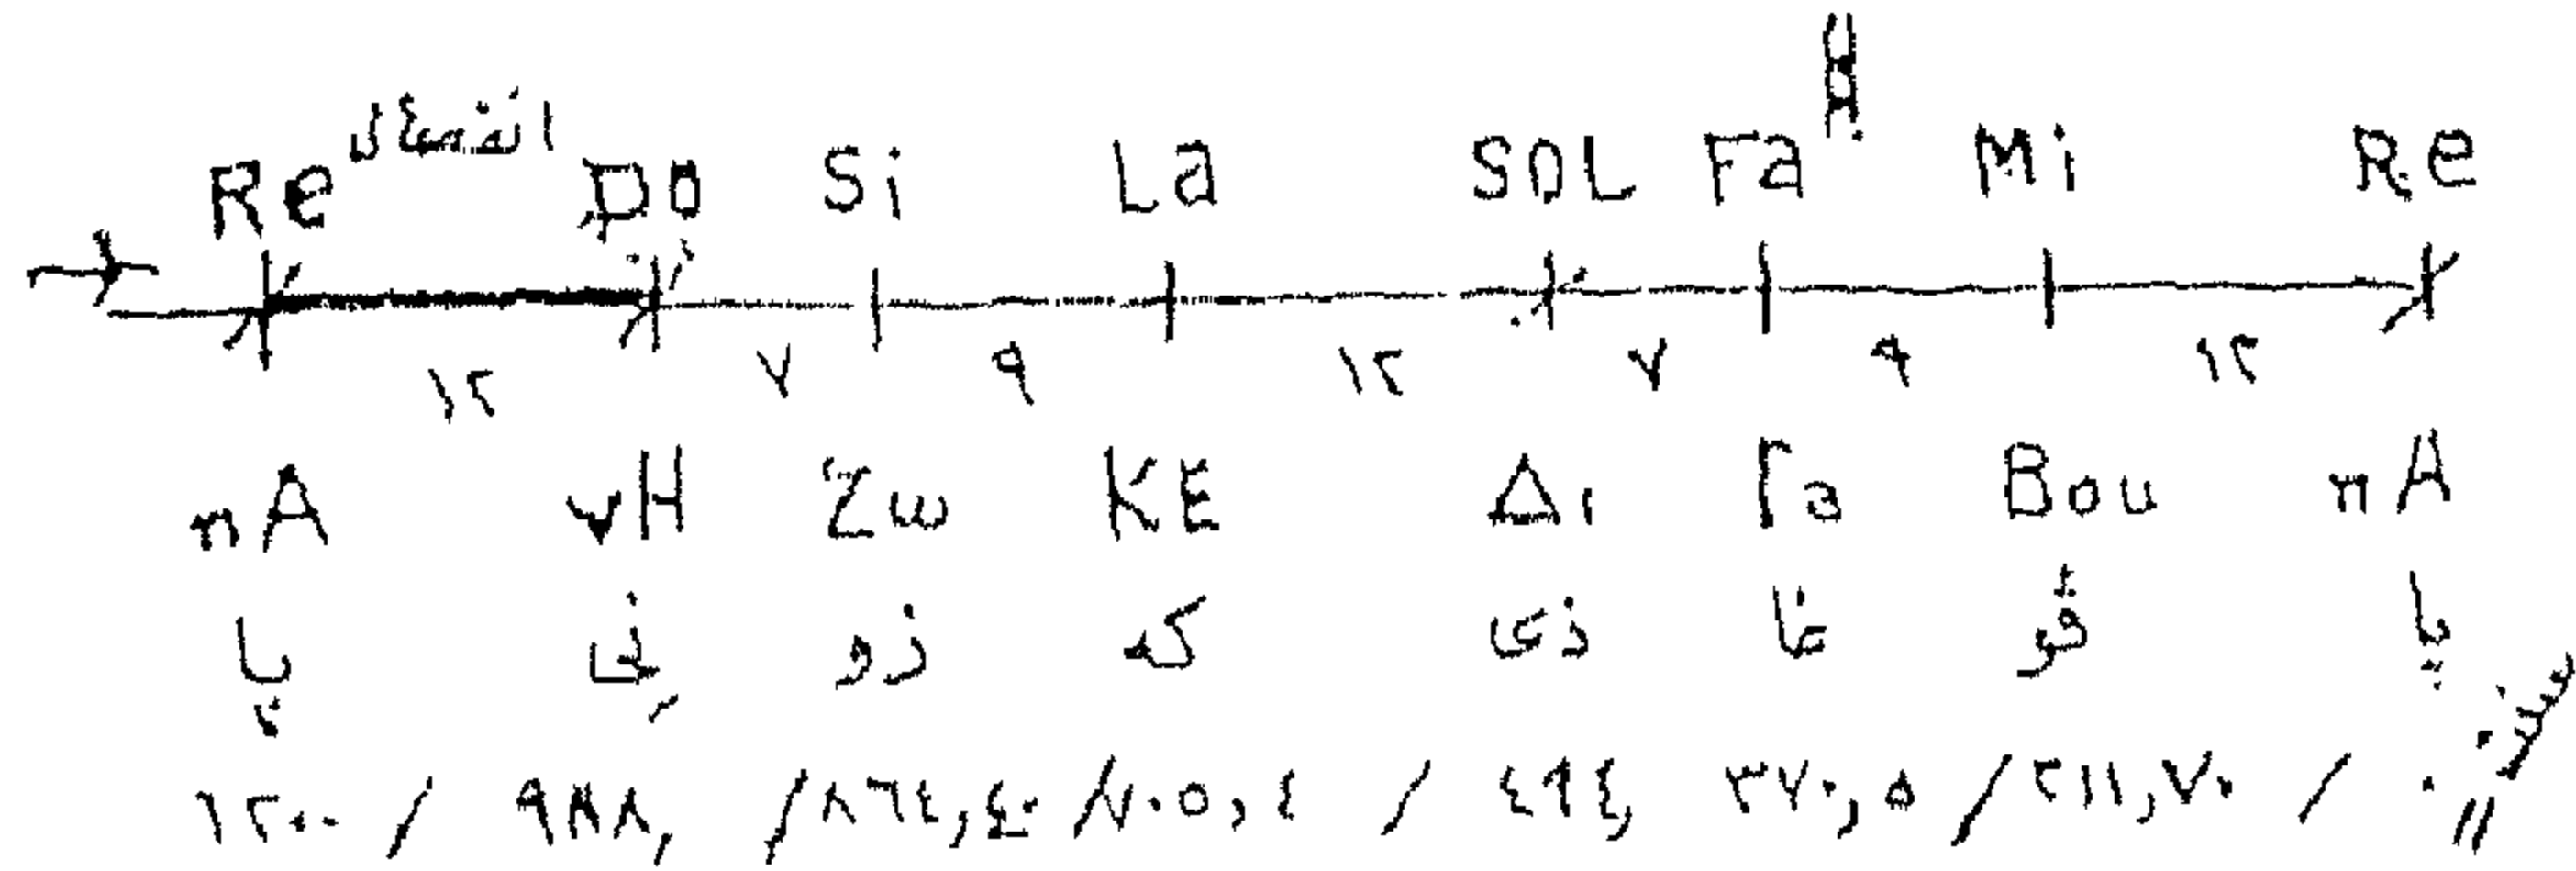 Re انفصال Do Si La SOL Fa Mi Re
١٢ ٧ ٩ ١٢ ٧ ٩ ١٢
πA νH Zω KE Δι Γα Βου πA
پا ني زو كه ذي غا ڤو پا
١٢٠٠ / ٩٨٨, / ٨٦٤,٤٠ / ٧٠٥,٤ / ٤٩٤, ٣٧٠,٥ / ٢١١,٧٠ / ٠